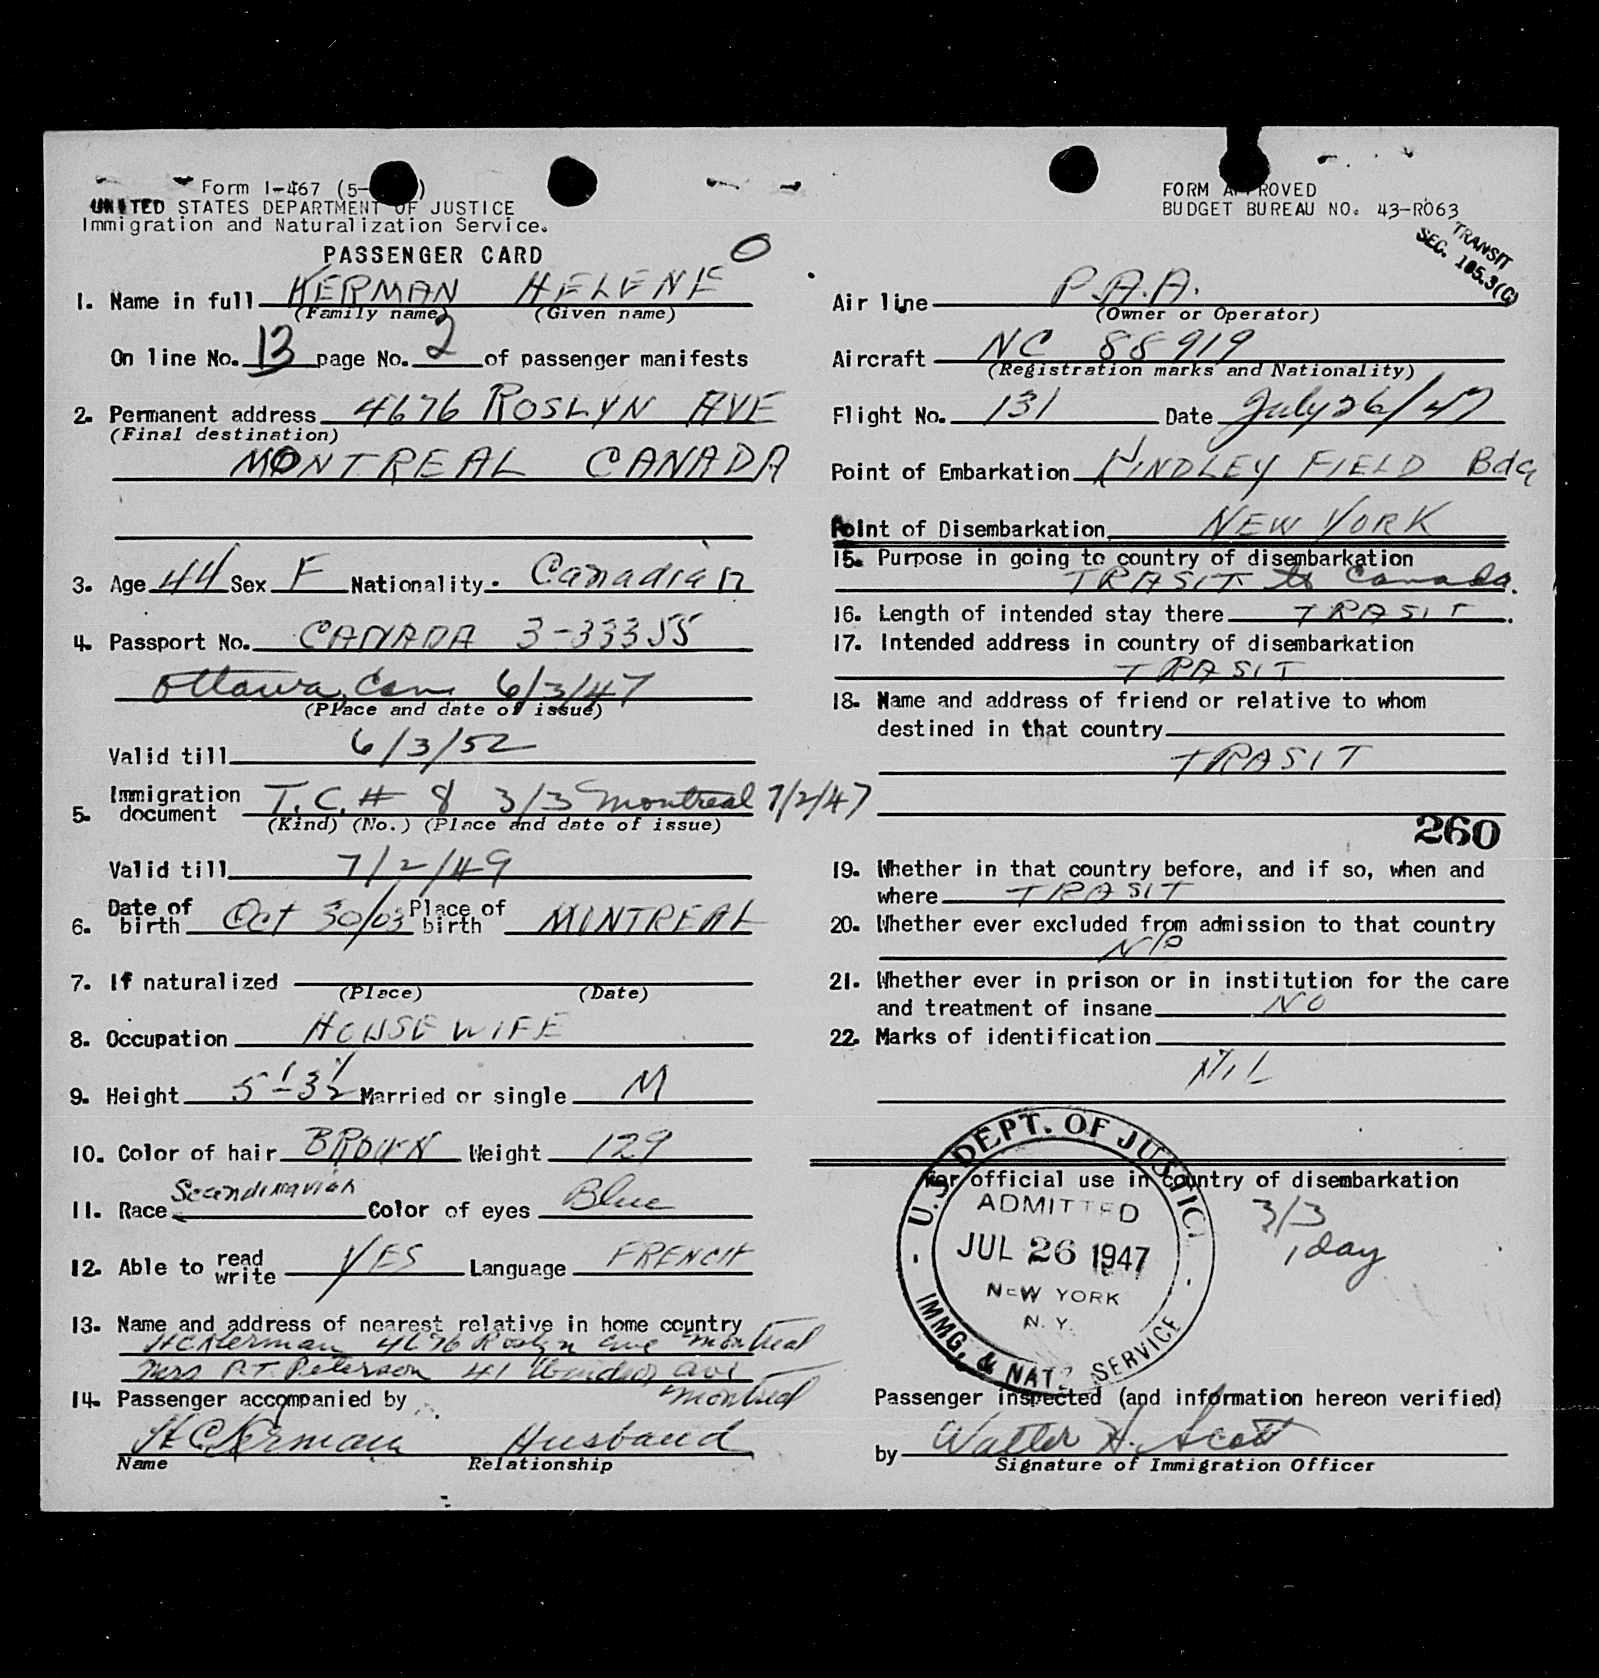 Form I-467 (5-
UNITED STATES DEPARTMENT OF JUSTICE
Immigration and Naturalization Service.
PASSENGER CARD
O
1. Name in full KERMAN HELENE
(Family name) (Given name)
On line No. 13 page No. 2 of passenger manifests
2. Permanent address 4676 ROSLYN AVE
(Final destination)
MONTREAL CANADA
3. Age 44 Sex F Nationality. Canadian
4. Passport No. CANADA 3-33355
Ottawa, Can 6/3/47
(Place and date of issue)
Valid till 6/3/52
5. Immigration document T.C. # 8 3/3 Montreal 7/2/47
(Kind) (No.) (Place and date of issue)
Valid till 7/2/49
6. Date of birth Oct 30/03 Place of birth MONTREAL
7. If naturalized
(Place) (Date)
8. Occupation HOUSE WIFE
9. Height 5'-3½" Married or single M
10. Color of hair BROWN Weight 129
11. Race Scandinavian Color of eyes Blue
12. Able to read write YES Language FRENCH
13. Name and address of nearest relative in home country
HC Kerman 4676 Roslyn ave Montreal
Mrs P.T. Peterson 41 ave
Montreal
14. Passenger accompanied by
H C Kerman Husband
Name Relationship
FORM APPROVED
BUDGET BUREAU NO. 43-R063
TRANSIT
SEC. 105.3(C)
Air line P.A.A.
(Owner or Operator)
Aircraft NC 88919
(Registration marks and Nationality)
Flight No. 131 Date July 26/47
Point of Embarkation KINDLEY FIELD Bda
Point of Disembarkation NEW YORK
15. Purpose in going to country of disembarkation
TRASIT to Canada.
16. Length of intended stay there TRASIT.
17. Intended address in country of disembarkation
TRASIT
18. Name and address of friend or relative to whom
destined in that country
TRASIT
260
19. Whether in that country before, and if so, when and
where TRASIT
20. Whether ever excluded from admission to that country
NO
21. Whether ever in prison or in institution for the care
and treatment of insane NO
22. Marks of identification
NIL
For official use in country of disembarkation
U.S. DEPT. OF JUSTICE
ADMITTED
JUL 26 1947
NEW YORK
N.Y.
IMMG. & NATZ. SERVICE
3/3
1 day
Passenger inspected (and information hereon verified)
by Walter H. Scott
Signature of Immigration Officer